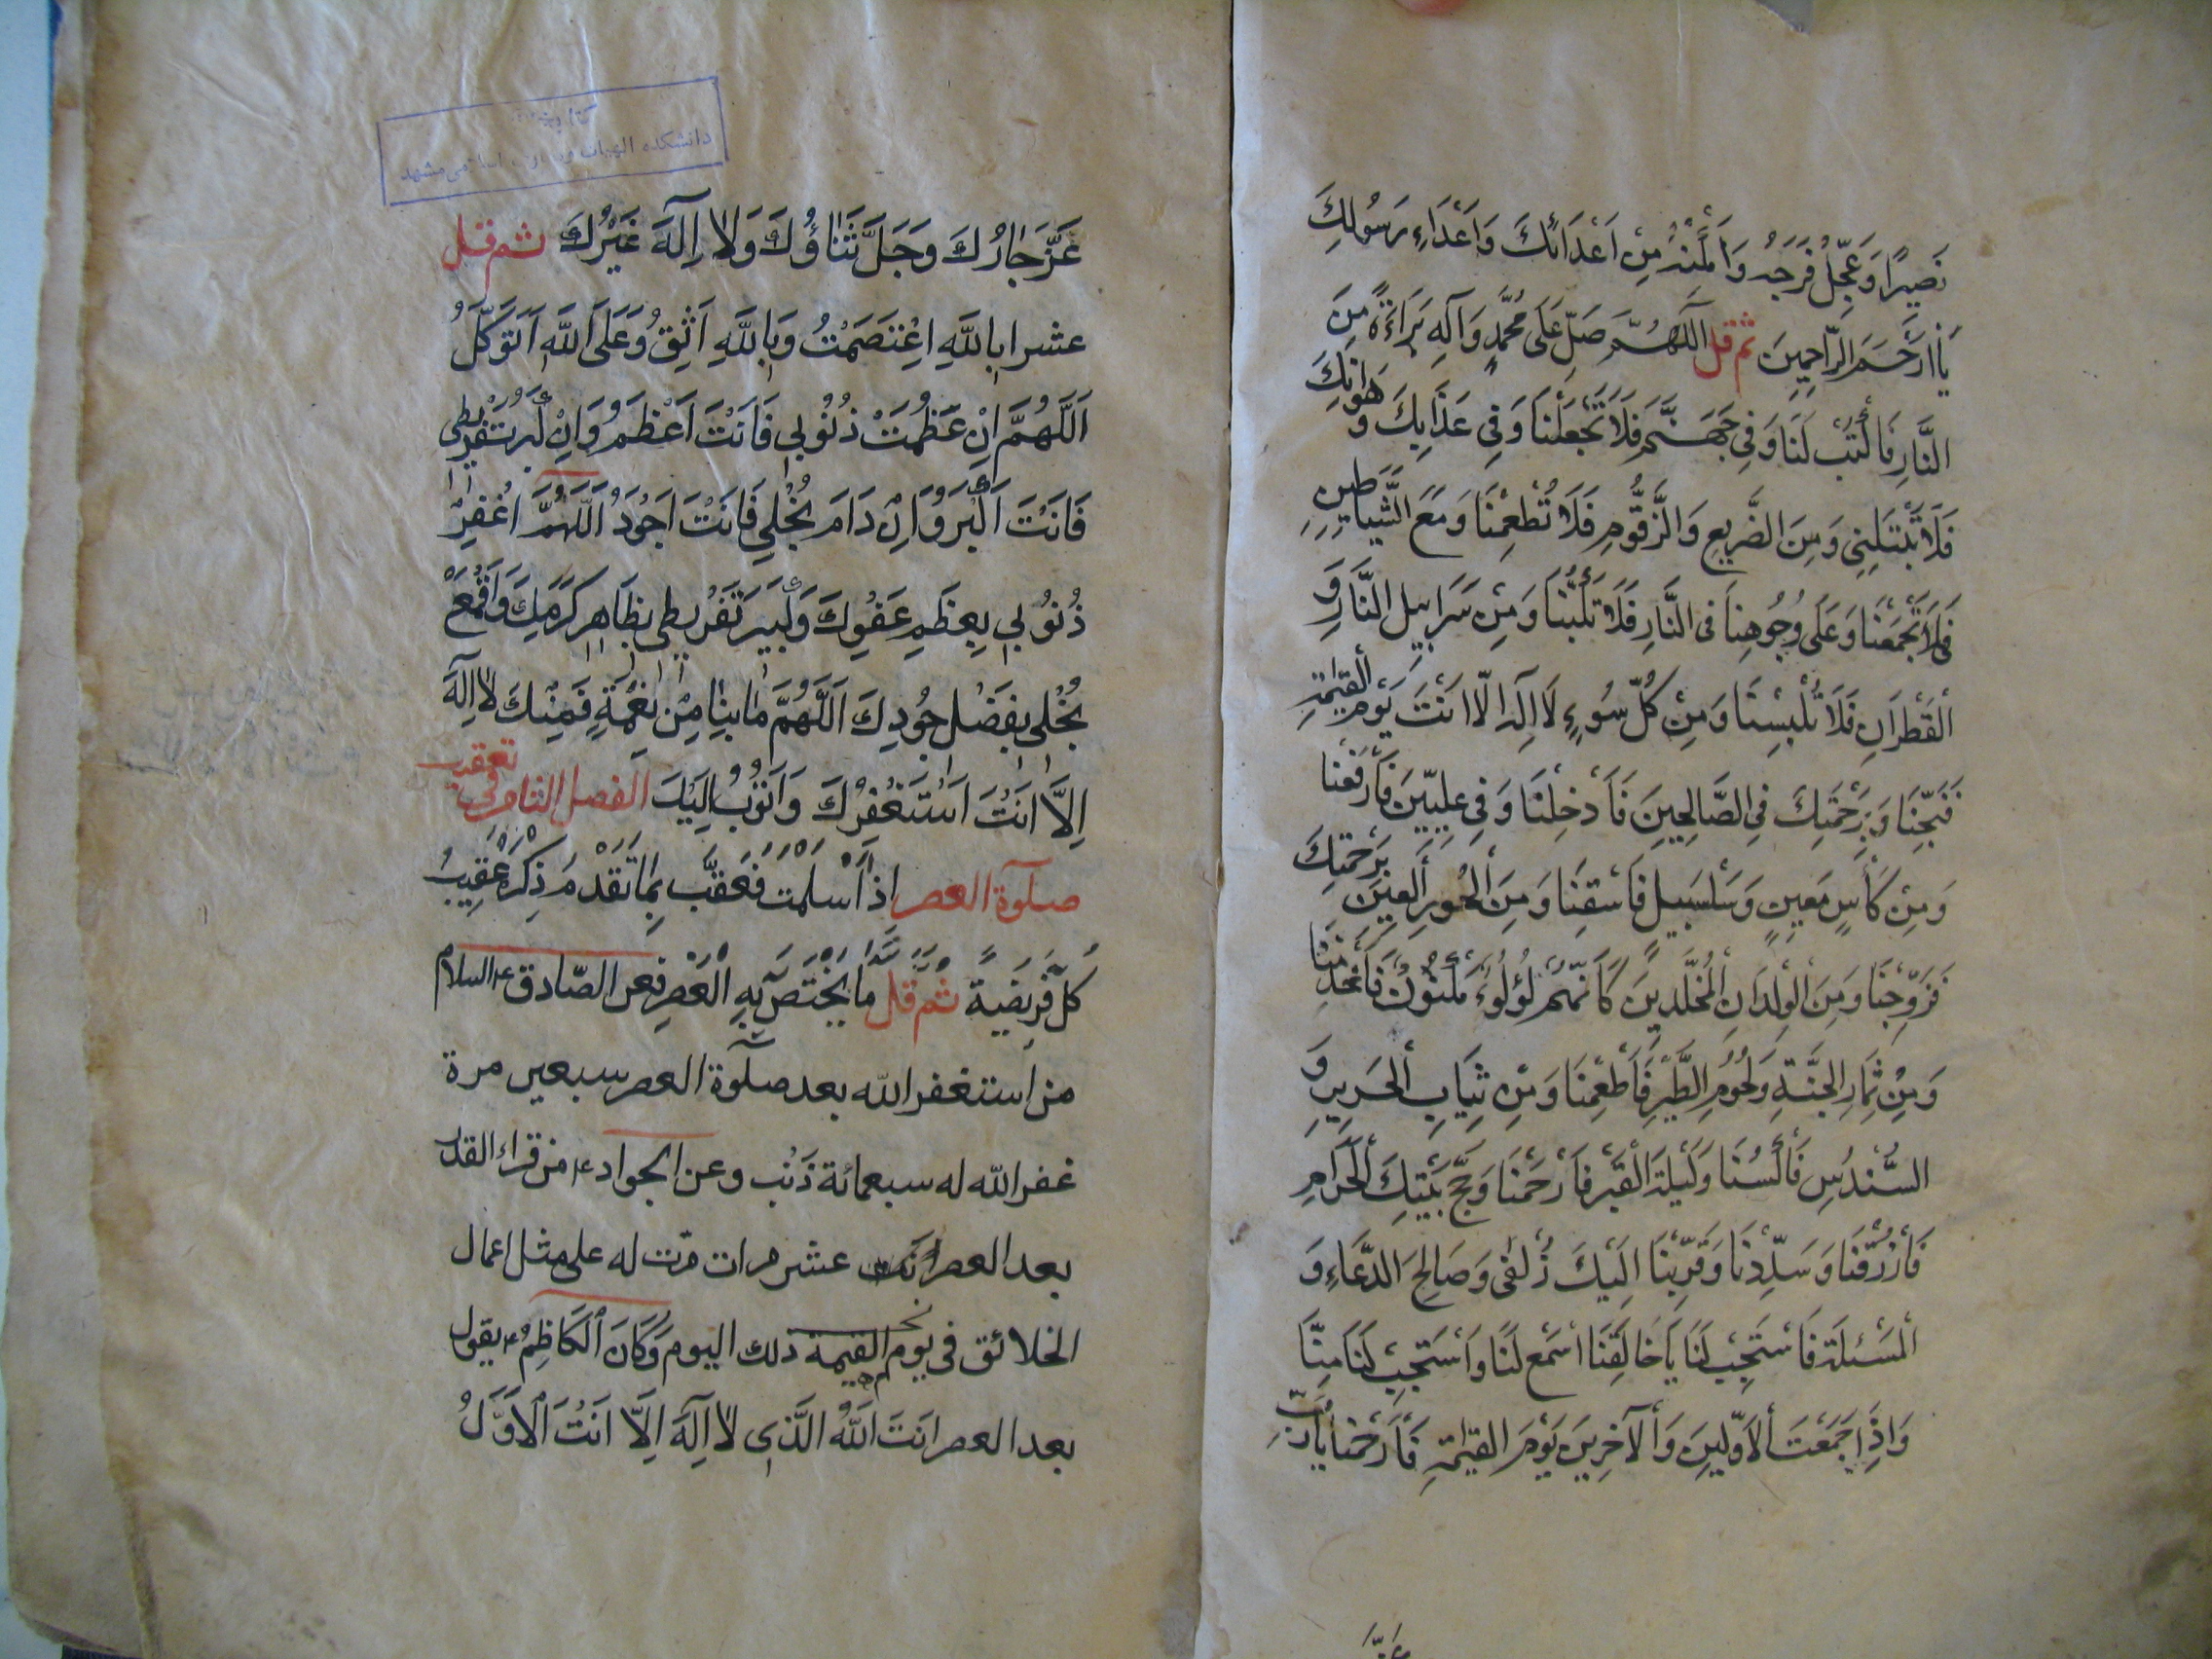 نَصِيرًا وَعَجِّلْ فَرَجَهُ وَأَمْكِنْهُ مِنْ اَعْدَائِكَ وَاَعْدَاءِ رَسُولِكَ
يَا اَرْحَمَ الرَّاحِمِينَ ثم قل اَللَّهُمَّ صَلِّ عَلَى مُحَمَّدٍ وَآلِهِ بَرَاءَةً مِنَ
النَّارِ فَاكْتُبْ لَنَا وَفِي جَهَنَّمَ فَلَا تَجْعَلْنَا وَفِي عَذَابِكَ وَ هَوَانِكَ
فَلَا تَبْتَلِنِي وَمِنَ الضَّرِيعِ وَالزَّقُّومِ فَلَا تُطْعِمْنَا وَمَعَ الشَّيَاطِينِ
فَلَا تَجْمَعْنَا وَعَلَى وُجُوهِنَا فِي النَّارِ فَلَا تَكُبَّنَا وَمِنْ سَرَابِيلِ النَّارِ وَ
الْقَطْرَانِ فَلَا تُلْبِسْنَا وَمِنْ كُلِّ سُوءٍ لَا اِلَهَ اِلَّا اَنْتَ يَوْمَ الْقِيٰمَةِ
فَنَجِّنَا وَبِرَحْمَتِكَ فِي الصَّالِحِينَ فَأَدْخِلْنَا وَفِي عِلِّيِّينَ فَارْفَعْنَا
وَمِنْ كَأْسٍ مَعِينٍ وَسَلْسَبِيلٍ فَاسْقِنَا وَمِنَ الْحُورِ الْعِينِ بِرَحْمَتِكَ
فَزَوِّجْنَا وَمِنَ الْوِلْدَانِ الْمُخَلَّدِينَ كَأَنَّهُمْ لُؤْلُؤٌ مَكْنُونٌ فَأَخْدِمْنَا
وَمِنْ ثِمَارِ الْجَنَّةِ وَلُحُومِ الطَّيْرِ فَأَطْعِمْنَا وَمِنْ ثِيَابِ الْحَرِيرِ وَ
السُّنْدُسِ فَاكْسُنَا وَلَيْلَةَ الْقَبْرِ فَارْحَمْنَا وَحَجَّ بَيْتِكَ الْحَرَامِ
فَارْزُقْنَا وَسَدِّدْنَا وَقَرِّبْنَا اِلَيْكَ زُلْفَى وَصَالِحَ الدُّعَاءِ وَ
الْمَسْئَلَةِ فَاسْتَجِبْ لَنَا يَا خَالِقَنَا اسْمَعْ لَنَا وَاسْتَجِبْ لَنَا مِنَّا
وَاِذَا جَمَعْتَ الْاَوَّلِينَ وَالْآخِرِينَ يَوْمَ الْقِيٰمَةِ فَارْحَمْنَا يَا رَبِّ
دانشکده الهیات و معارف اسلامی مشهد
عَزَّ جَارُكَ وَجَلَّ ثَنَاؤُكَ وَلَا اِلَهَ غَيْرُكَ ثم قل
عشرا بِاللَّهِ اعْتَصَمْتُ وَبِاللَّهِ اَثِقُ وَعَلَى اللَّهِ اَتَوَكَّلُ
اَللَّهُمَّ اِنْ عَظُمَتْ ذُنُوبِي فَاَنْتَ اَعْظَمُ وَاِنْ كَبُرَ تَفْرِيطِي
فَاَنْتَ اَكْبَرُ وَاِنْ دَامَ بُخْلِي فَاَنْتَ اَجْوَدُ اَللَّهُمَّ اغْفِرْ
ذُنُوبِي بِعِظَمِ عَفْوِكَ وَكَبِيرَ تَفْرِيطِي بِظَاهِرِ كَرَمِكَ وَاقْمَعْ
بُخْلِي بِفَضْلِ جُودِكَ اَللَّهُمَّ مَا بِنَا مِنْ نِعْمَةٍ فَمِنْكَ لَا اِلَهَ
اِلَّا اَنْتَ اَسْتَغْفِرُكَ وَاَتُوبُ اِلَيْكَ الفصل الثامن فى تعقيب
صلوة العصر اذا سلمت فعَقِّب بِمَا تَقَدَّمَ ذِكْرُهُ عَقِيبَ
كُلِّ فَرِيضَةٍ ثُمَّ قُل مَا يَخْتَصُّ بِهِ الْعَصْر فعن الصّادق ع السلام
من استغفر الله بعد صلوة العصر سبعين مرة
غفر الله له سبعمائة ذَنْب وعن الجواد ع من قراء القدر
بعد العصر عشر مرات مرّت له على مثل اعمال
الخلائق فى يوم القيمة ذلك اليوم وَكَانَ الْكَاظِمُ ع يقول
بعد العصر اَنْتَ اللَّهُ الَّذِي لَا اِلَهَ اِلَّا اَنْتَ الْاَوَّلُ